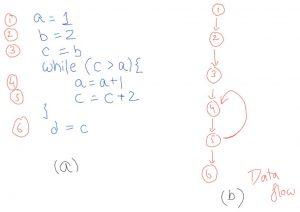 ① a = 1
② b = 2
③ c = b
while (c > a){
④ a = a+1
⑤ c = c+2
}
⑥ d = c
(a)
1
2
3
4
5
6
(b)
Data
flow